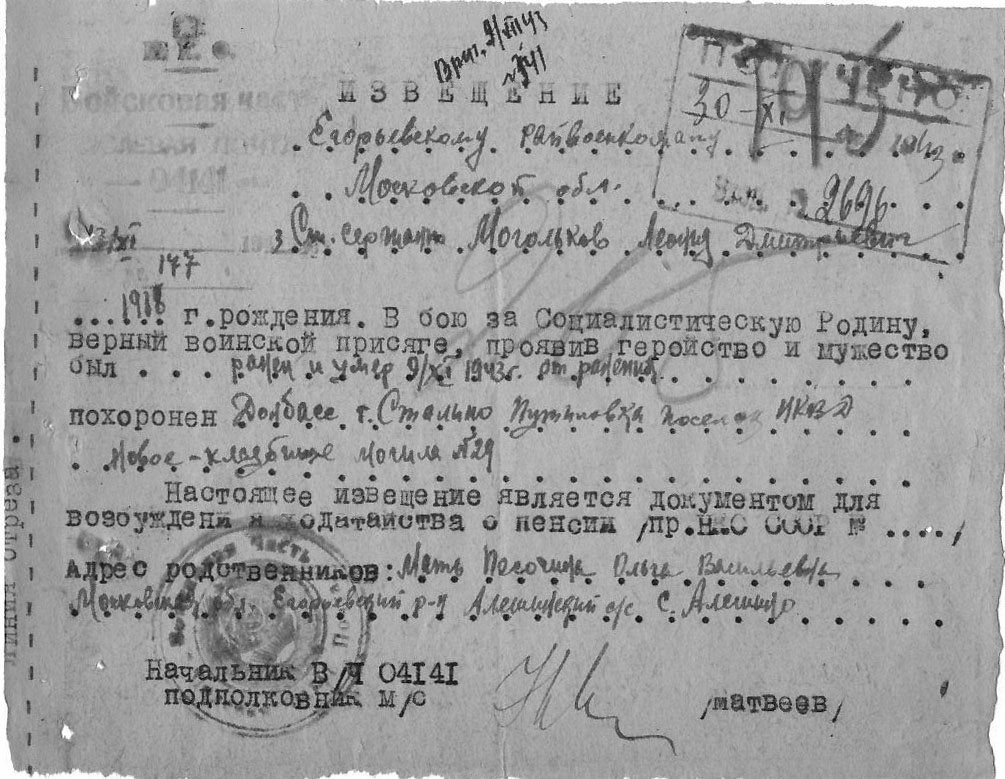 Вруч. 9/XII 43
ИЗВЕЩЕНИЕ
Егорьевскому райвоенкомату
Московской обл.
Войсковая часть
04141
30-XI 1943
2696
23/XI
177
Ст. сержант Могольков Леонид Дмитриевич
1918 г.рождения. В бою за Социалистическую Родину,
верный воинской присяге, проявив геройство и мужество
был ранен и умер 9/XI 1943г. от ранения
похоронен Донбасс г. Сталино Путиловка поселок НКВД
Новое-кладбище могила №29
Настоящее извещение является документом для
возбуждения ходатайства о пенсии /пр.НКО СССР № ..../
Адрес родственников: Мать Песочина Ольга Васильевна
Московская обл. Егорьевский р-н Алешинский с/с с. Алешино
Начальник В/Ч 04141
подполковник м/с /матвеев/
линия отреза.